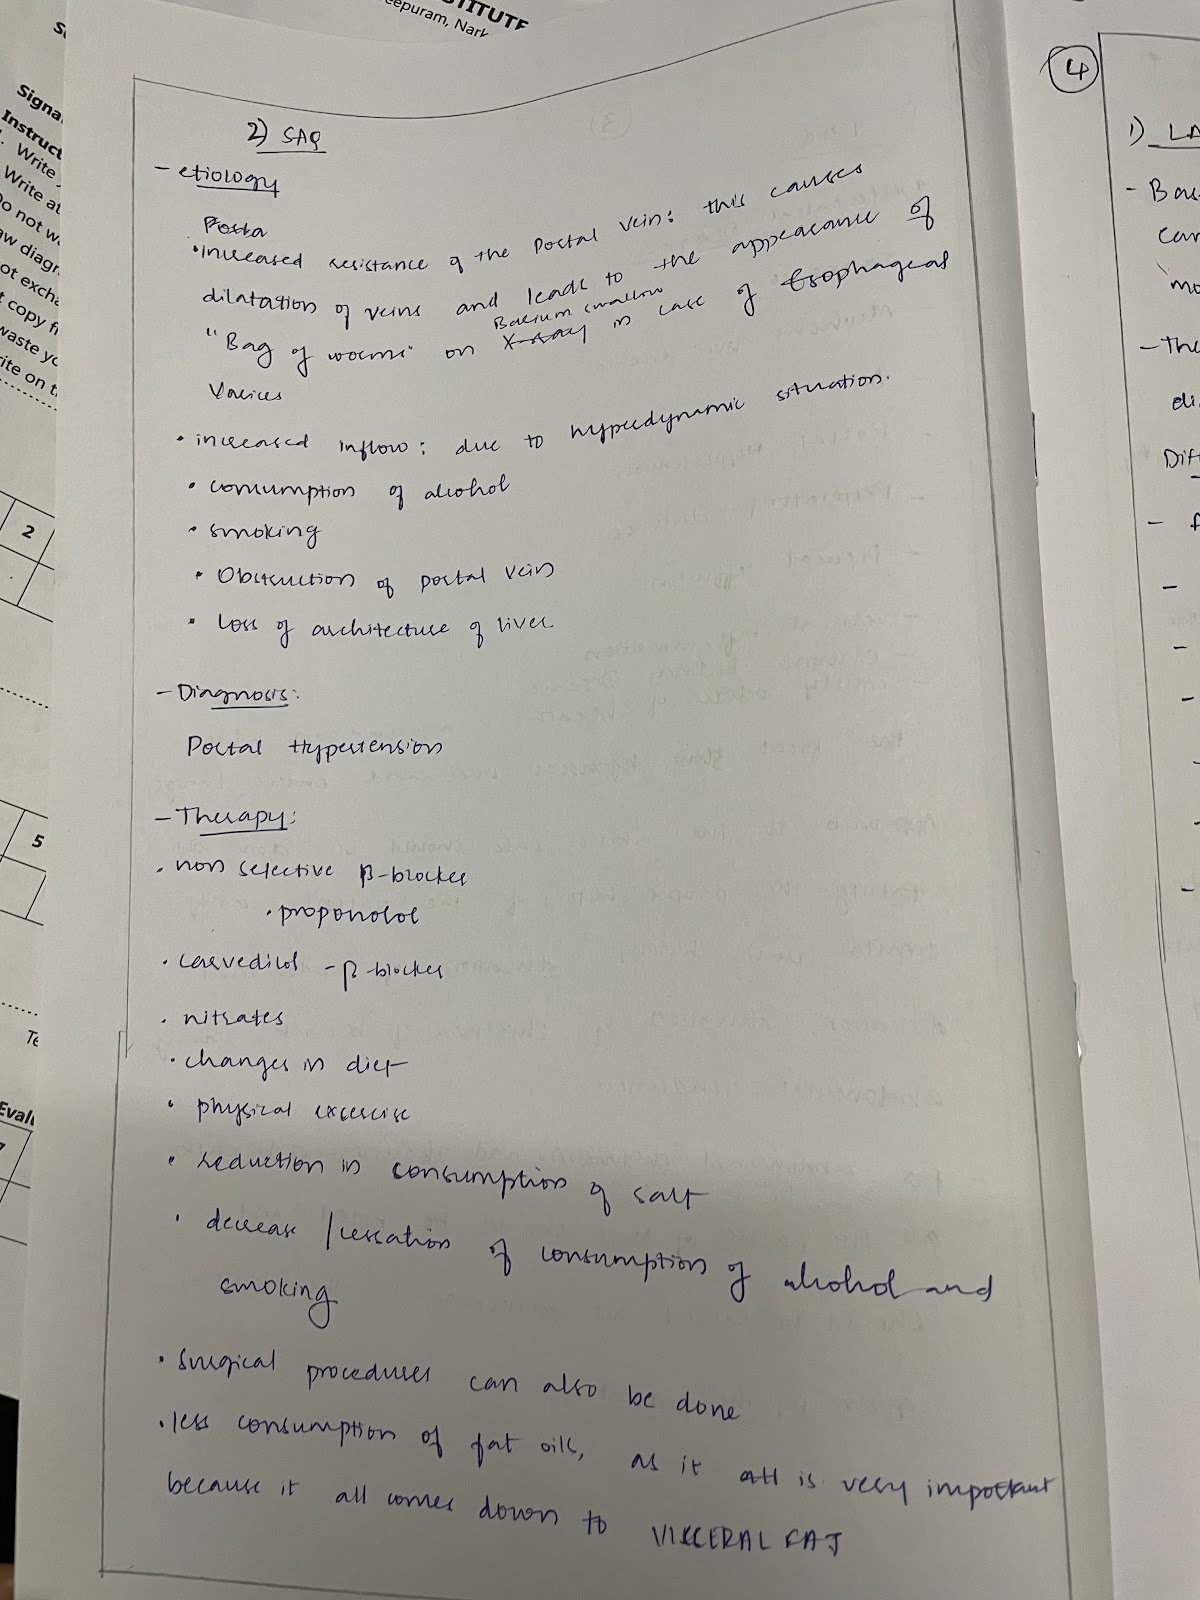 STITUTE
eepuram, Nark
Signa
Instruct
Write
Write at
Do not w
aw diagr
ot exch
t copy f
waste yo
rite on t
2
5
Te
Evalu
2) SAQ
- etiology
Porta
• increased resistance of the Portal Vein: this causes
dilatation of veins and leads to the appearance of
Barium swallow
"Bag of worms" on X-ray in case of Esophageal
Varices
• increased inflow: due to hyperdynamic situation.
• consumption of alcohol
• smoking
• Obstruction of portal vein
• Loss of architecture of liver
- Diagnosis:
Portal Hypertension
- Therapy:
• non selective β-blocker
• proponolol
• carvedilol - β-blocker
• nitrates
• changes in diet
• physical excercise
• reduction in consumption of salt
• decrease / cessation of consumption of alcohol and
smoking
• surgical procedures can also be done
• less consumption of fat oils, as it all is very important
because it all comes down to VISCERAL FAT
4
1) LA
- Bas
can
mo
- The
di
Diff